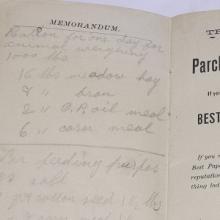 MEMORANDUM.
Ration for one day for
animal weighing
1000 lbs
16 lbs meadow hay
8 " bran
2 " O.P. oil meal
6 " corn meal
For feeding purpos
lbs salt
cotton seed
TE
Parch
If yo
BEST
If you w
Best Pape
reputation
thing inst